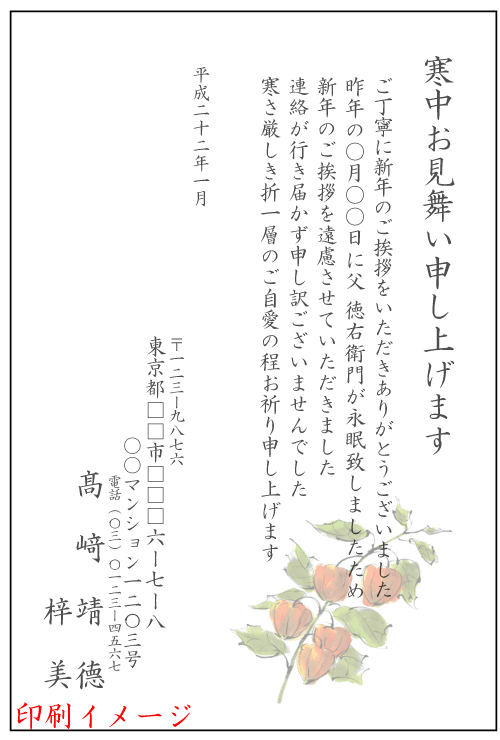 寒中お見舞い申し上げます
ご丁寧に新年のご挨拶をいただきありがとうございました
昨年の〇月〇〇日に父 徳右衛門が永眠致しましたため
新年のご挨拶を遠慮させていただきました
連絡が行き届かず申し訳ございませんでした
寒さ厳しき折一層のご自愛の程お祈り申し上げます
平成二十二年一月
〒一二三ー九八七六
東京都□□市□□□六ー七ー八
〇〇マンション一二〇三号
電話（〇三）〇一二三ー四五六七
髙﨑靖德
梓美
印刷イメージ